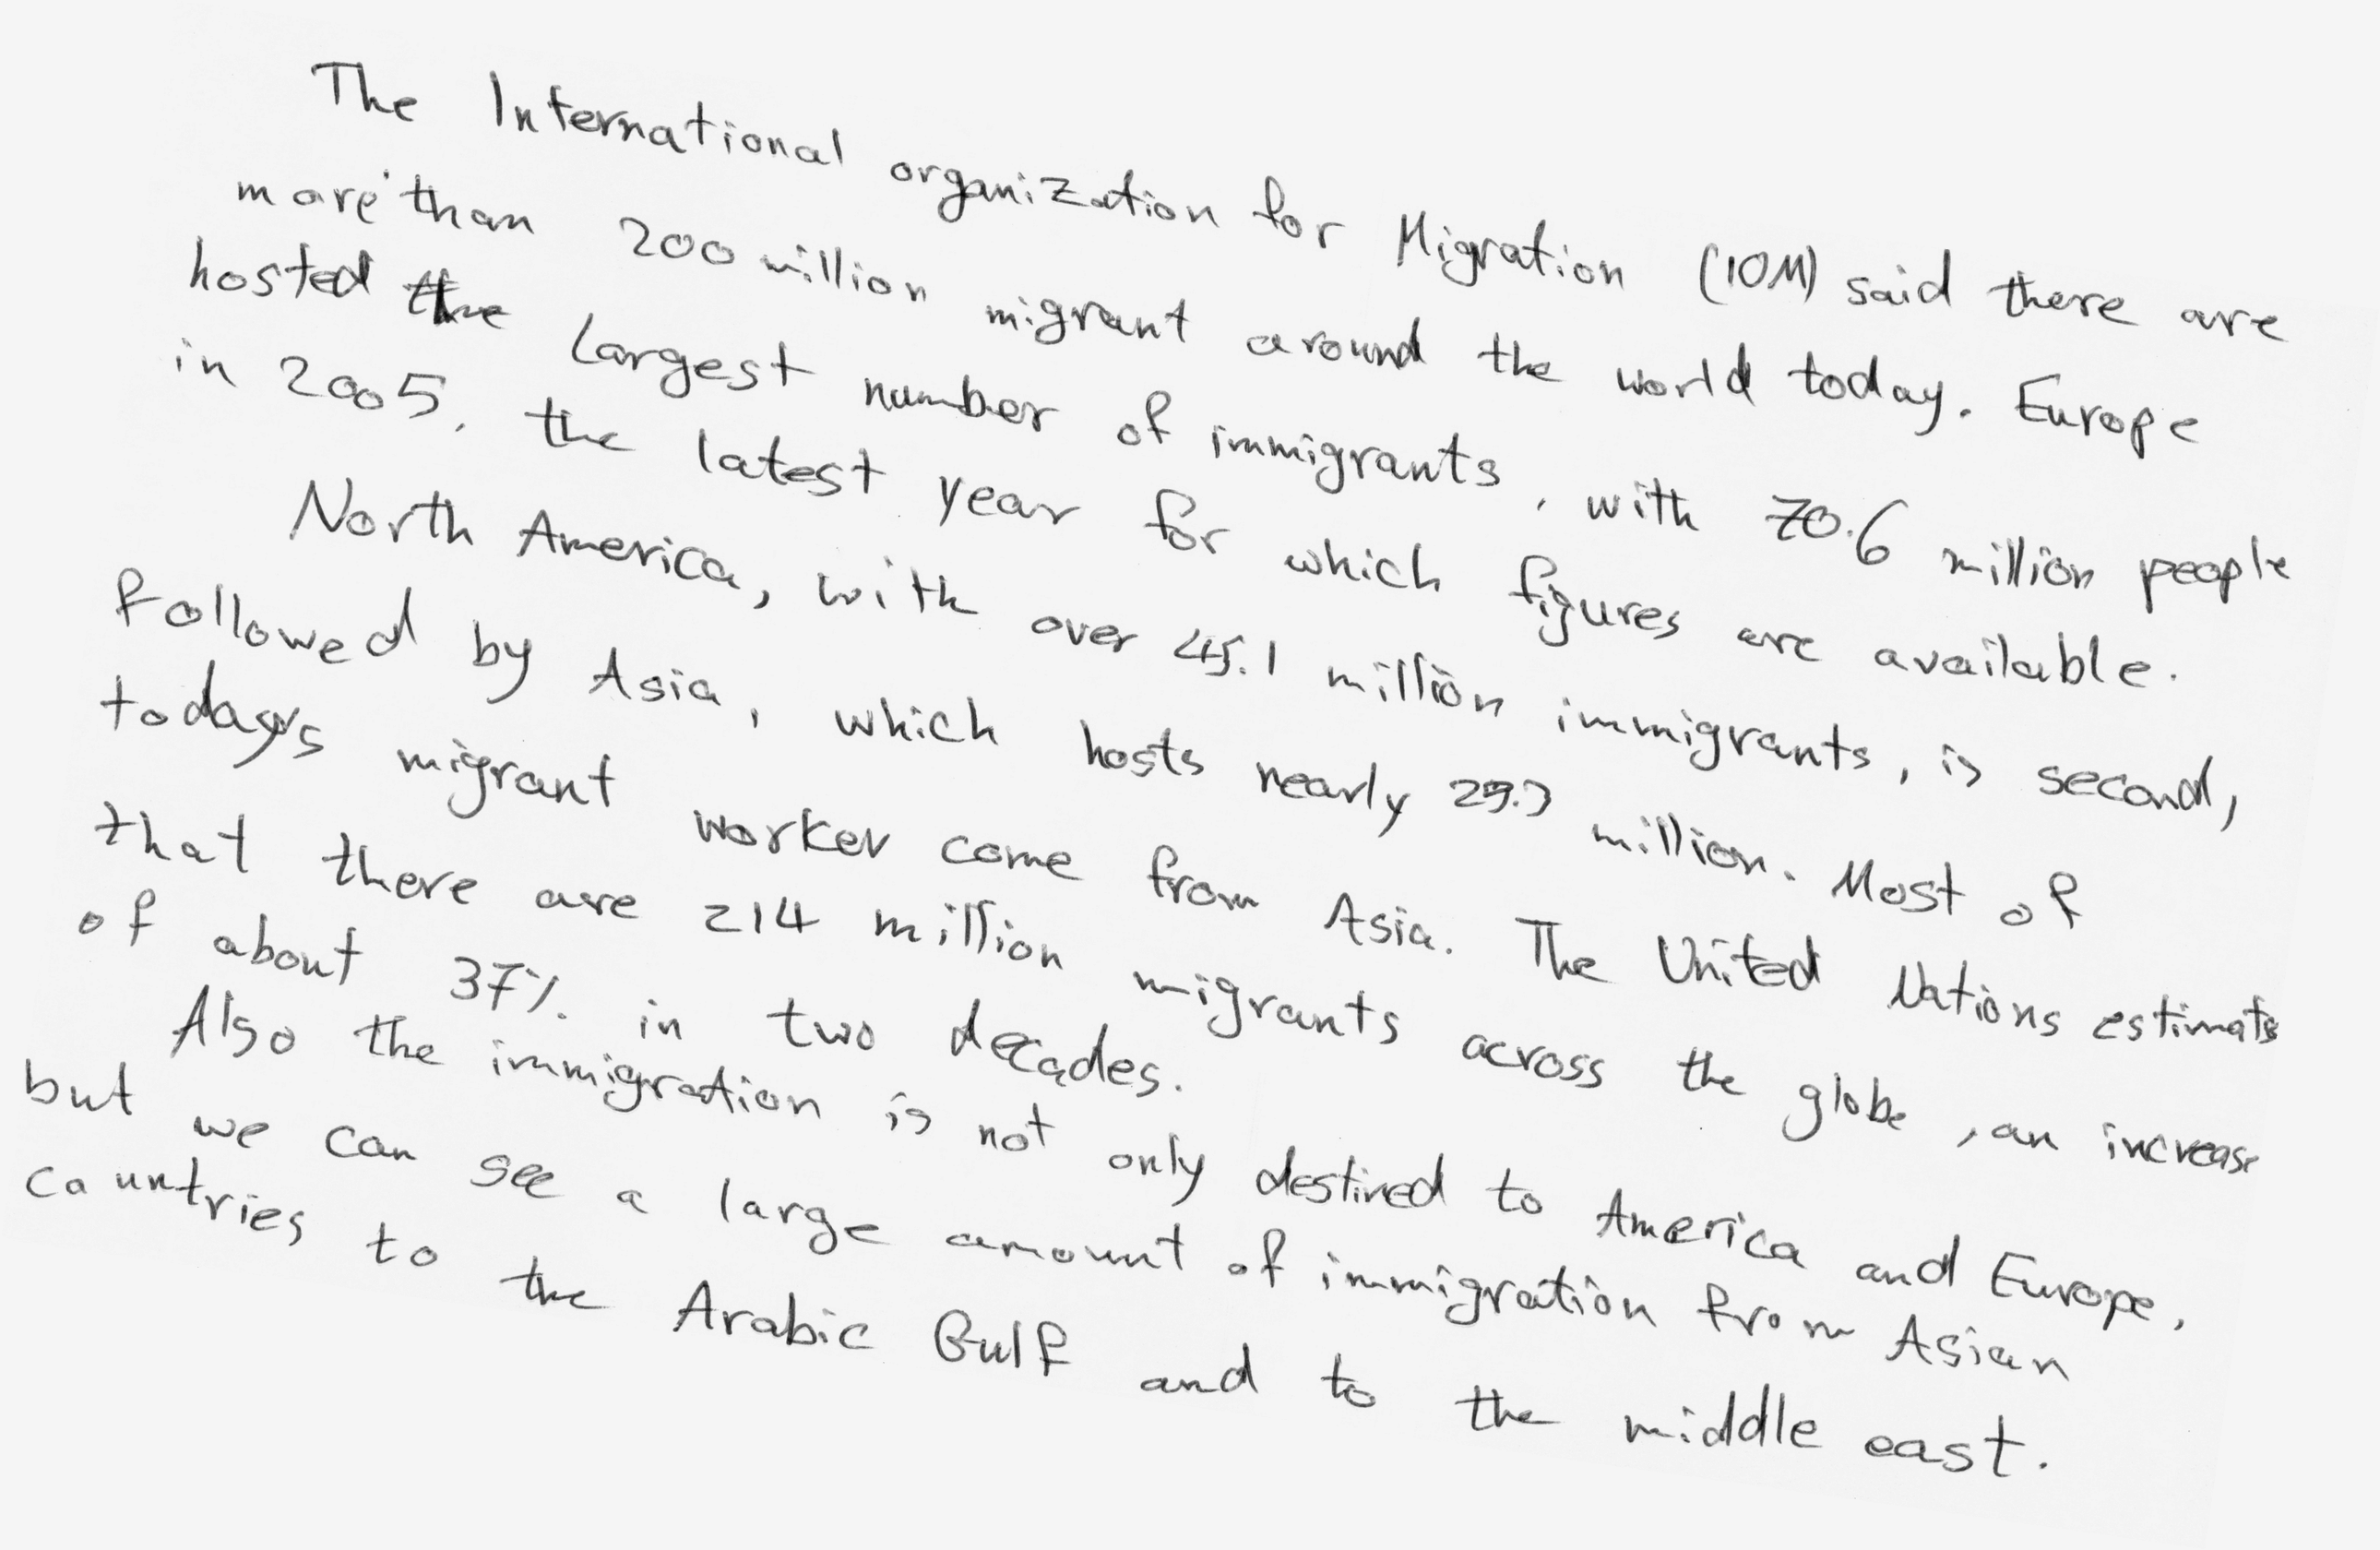 The International organization for Migration (IOM) said there are
more than 200 million migrant around the world today. Europe
hosted the Largest number of immigrants, with 70.6 million people
in 2005, the latest year for which figures are available.
North America, with over 45.1 million immigrants, is second,
followed by Asia, which hosts nearly million. Most of
today's migrant worker come from Asia. The United Nations estimate
that there are 214 million migrants across the globe, an increase
of about 37%. in two decades.
Also the immigration is not only destined to America and Europe,
but we can see a large amount of immigration from Asian
countries to the Arabic Gulf and to the middle east.